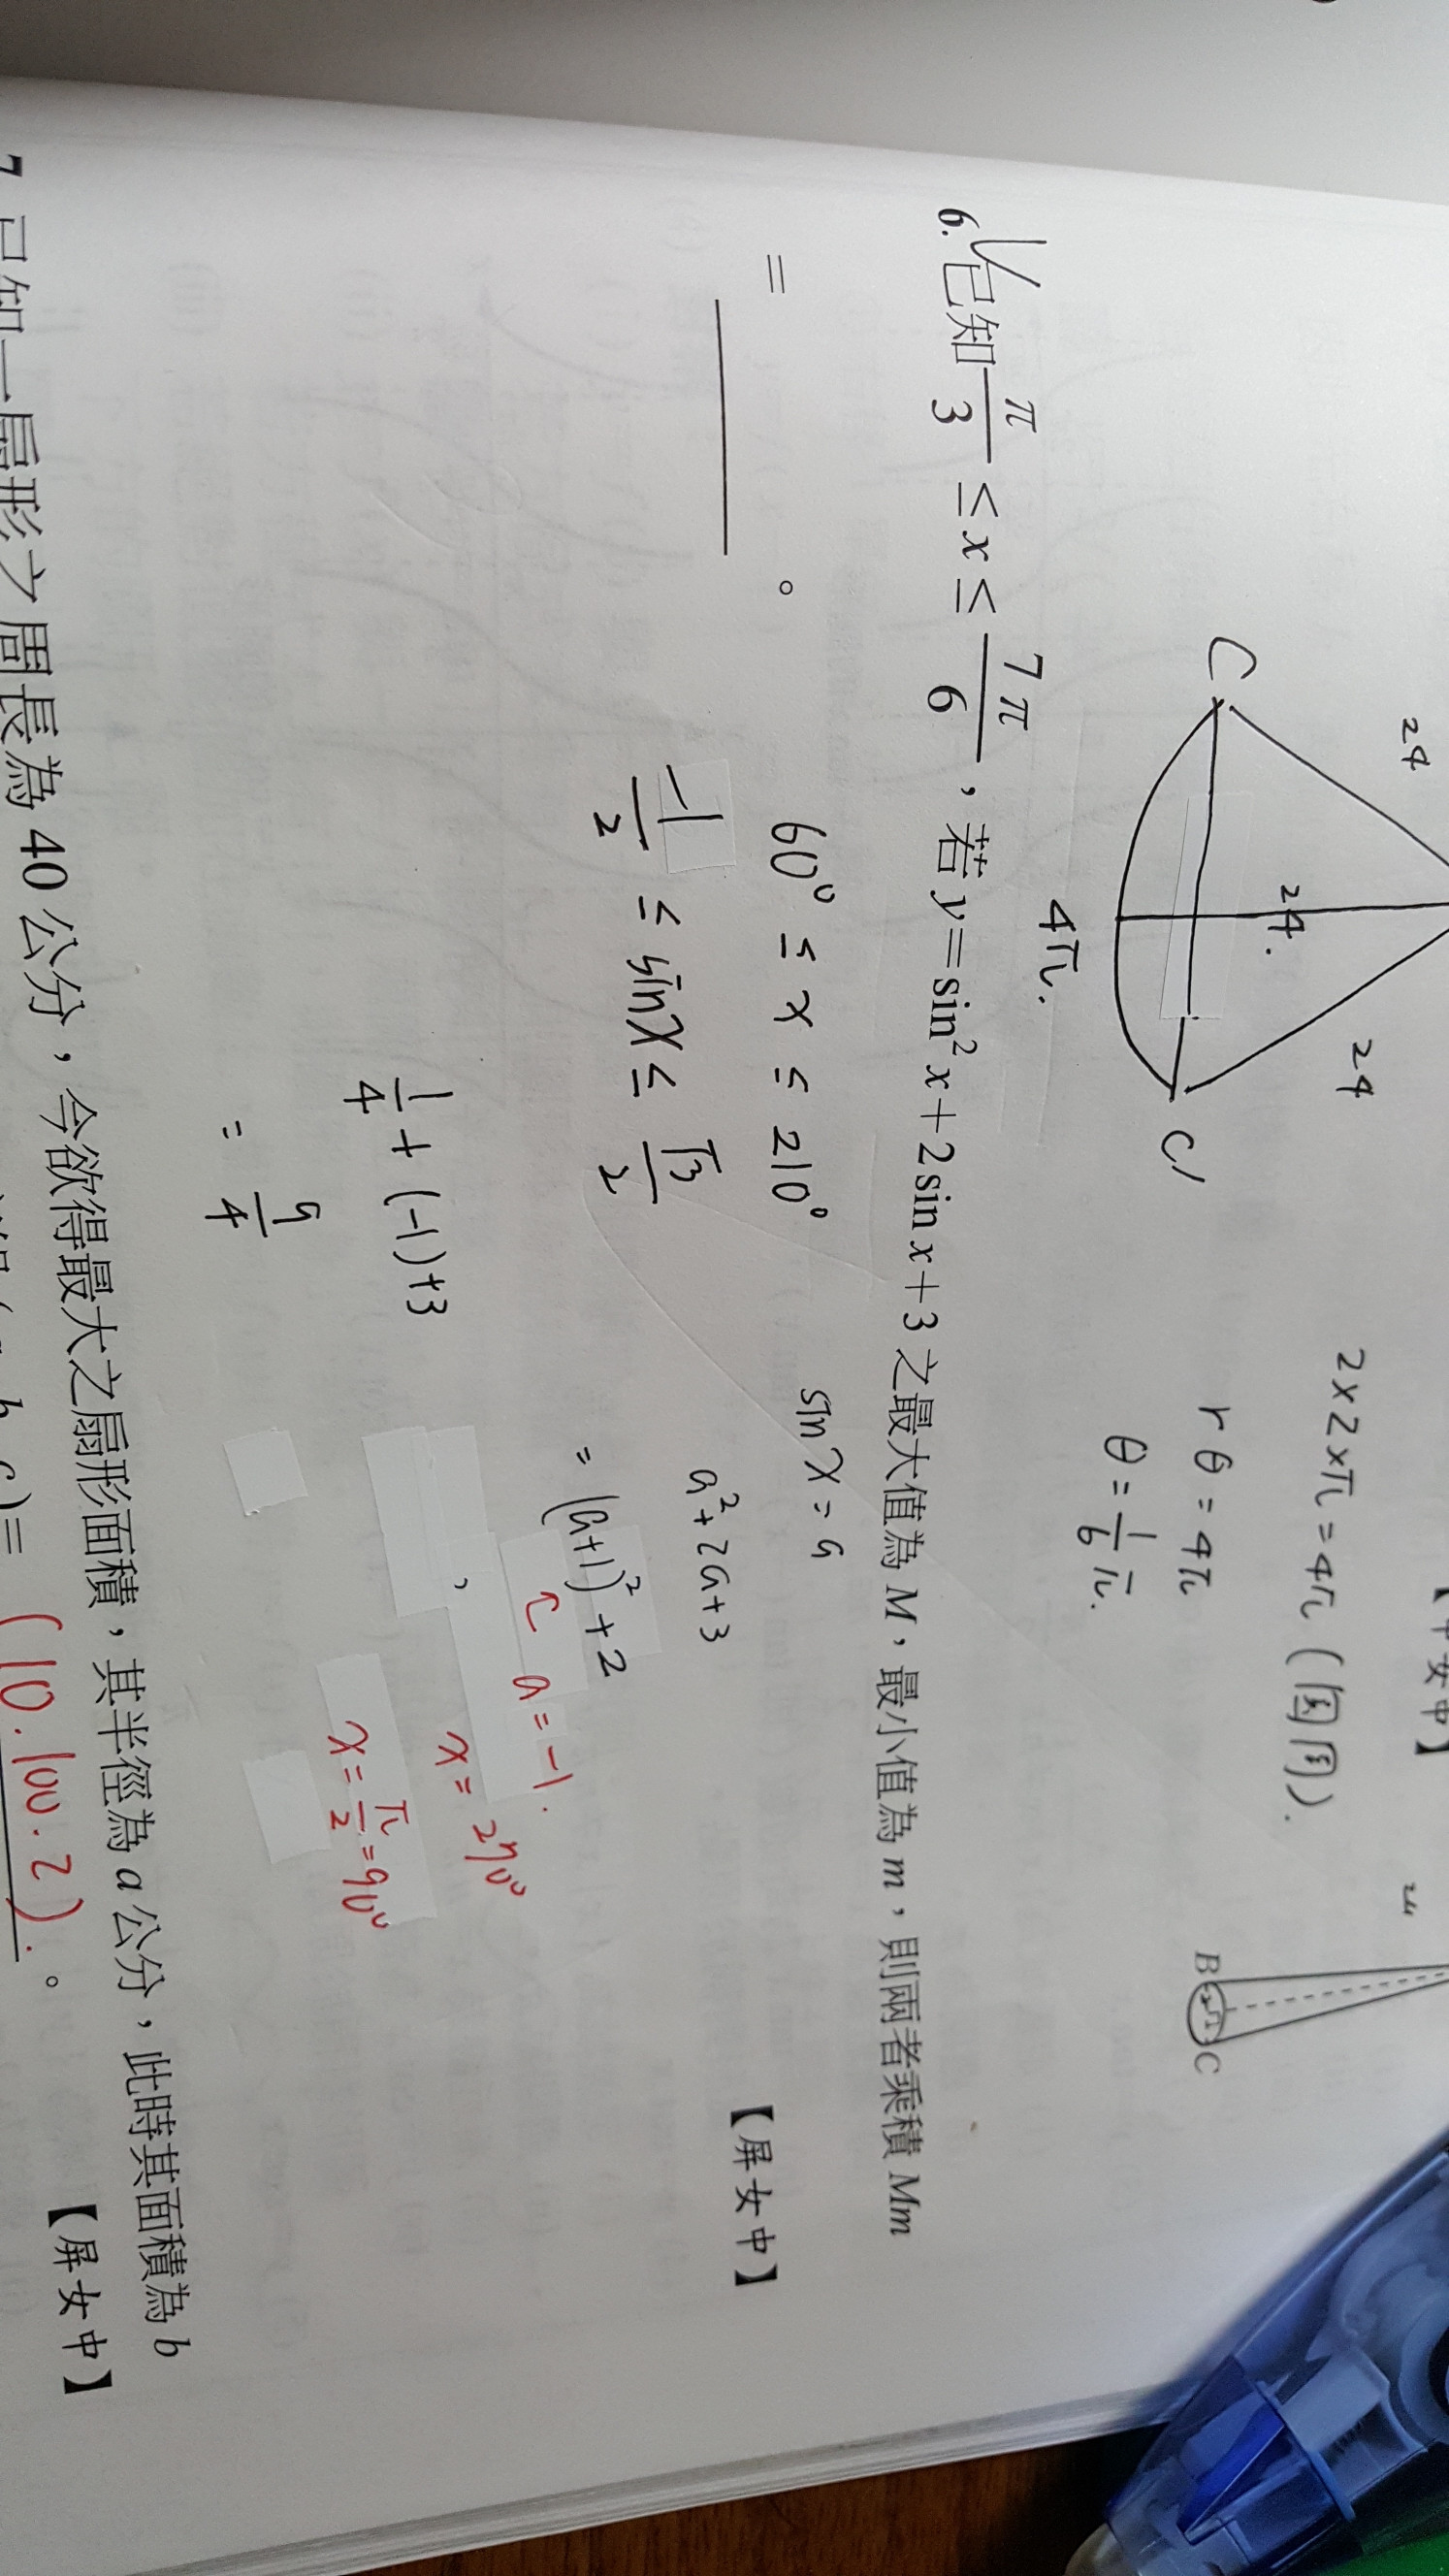 【中女中】
24
24
24
C
C'
4π.
2×2×π=4π(圓周).
rθ=4π
θ=1/6 π.
B
C
6.已知π/3≤x≤7π/6,若y=sin²x+2sin x+3之最大值為M,最小值為m,則兩者乘積Mm
=______。
【屏女中】
60°≤x≤210°
sinx=a
-1/2≤sinx≤√3/2
a²+2a+3
=(a+1)²+2
a=-1.
1/4+(-1)+3
x=270°
=9/4
x=π/2=90°
7.已知一扇形之周長為40公分,今欲得最大之扇形面積,其半徑為a公分,此時其面積為b
b, c)=(10.100.2).。
【屏女中】